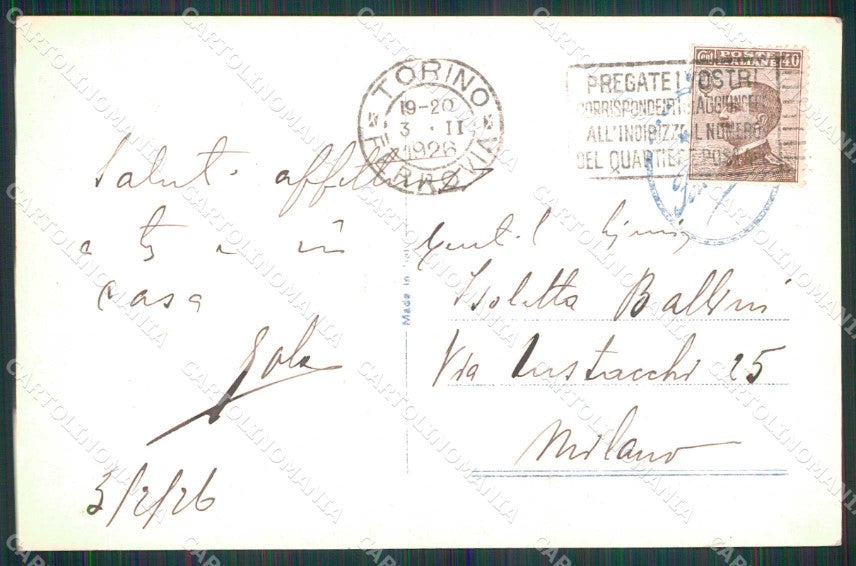 TORINO
19-20
3 . II
1926
FERROVIA
PREGATE I VOSTRI
CORRISPONDENTI D'AGGIUNGERE
ALL'INDIRIZZO IL NUMERO
DEL QUARTIERE POSTALE
POSTE
ITALIANE
40
Saluti affettuosi
a te e in
casa
3/2/26
Made in
Isoletta Ballini
Via Eustacchi 25
Milano
CARTOLINOMANIA